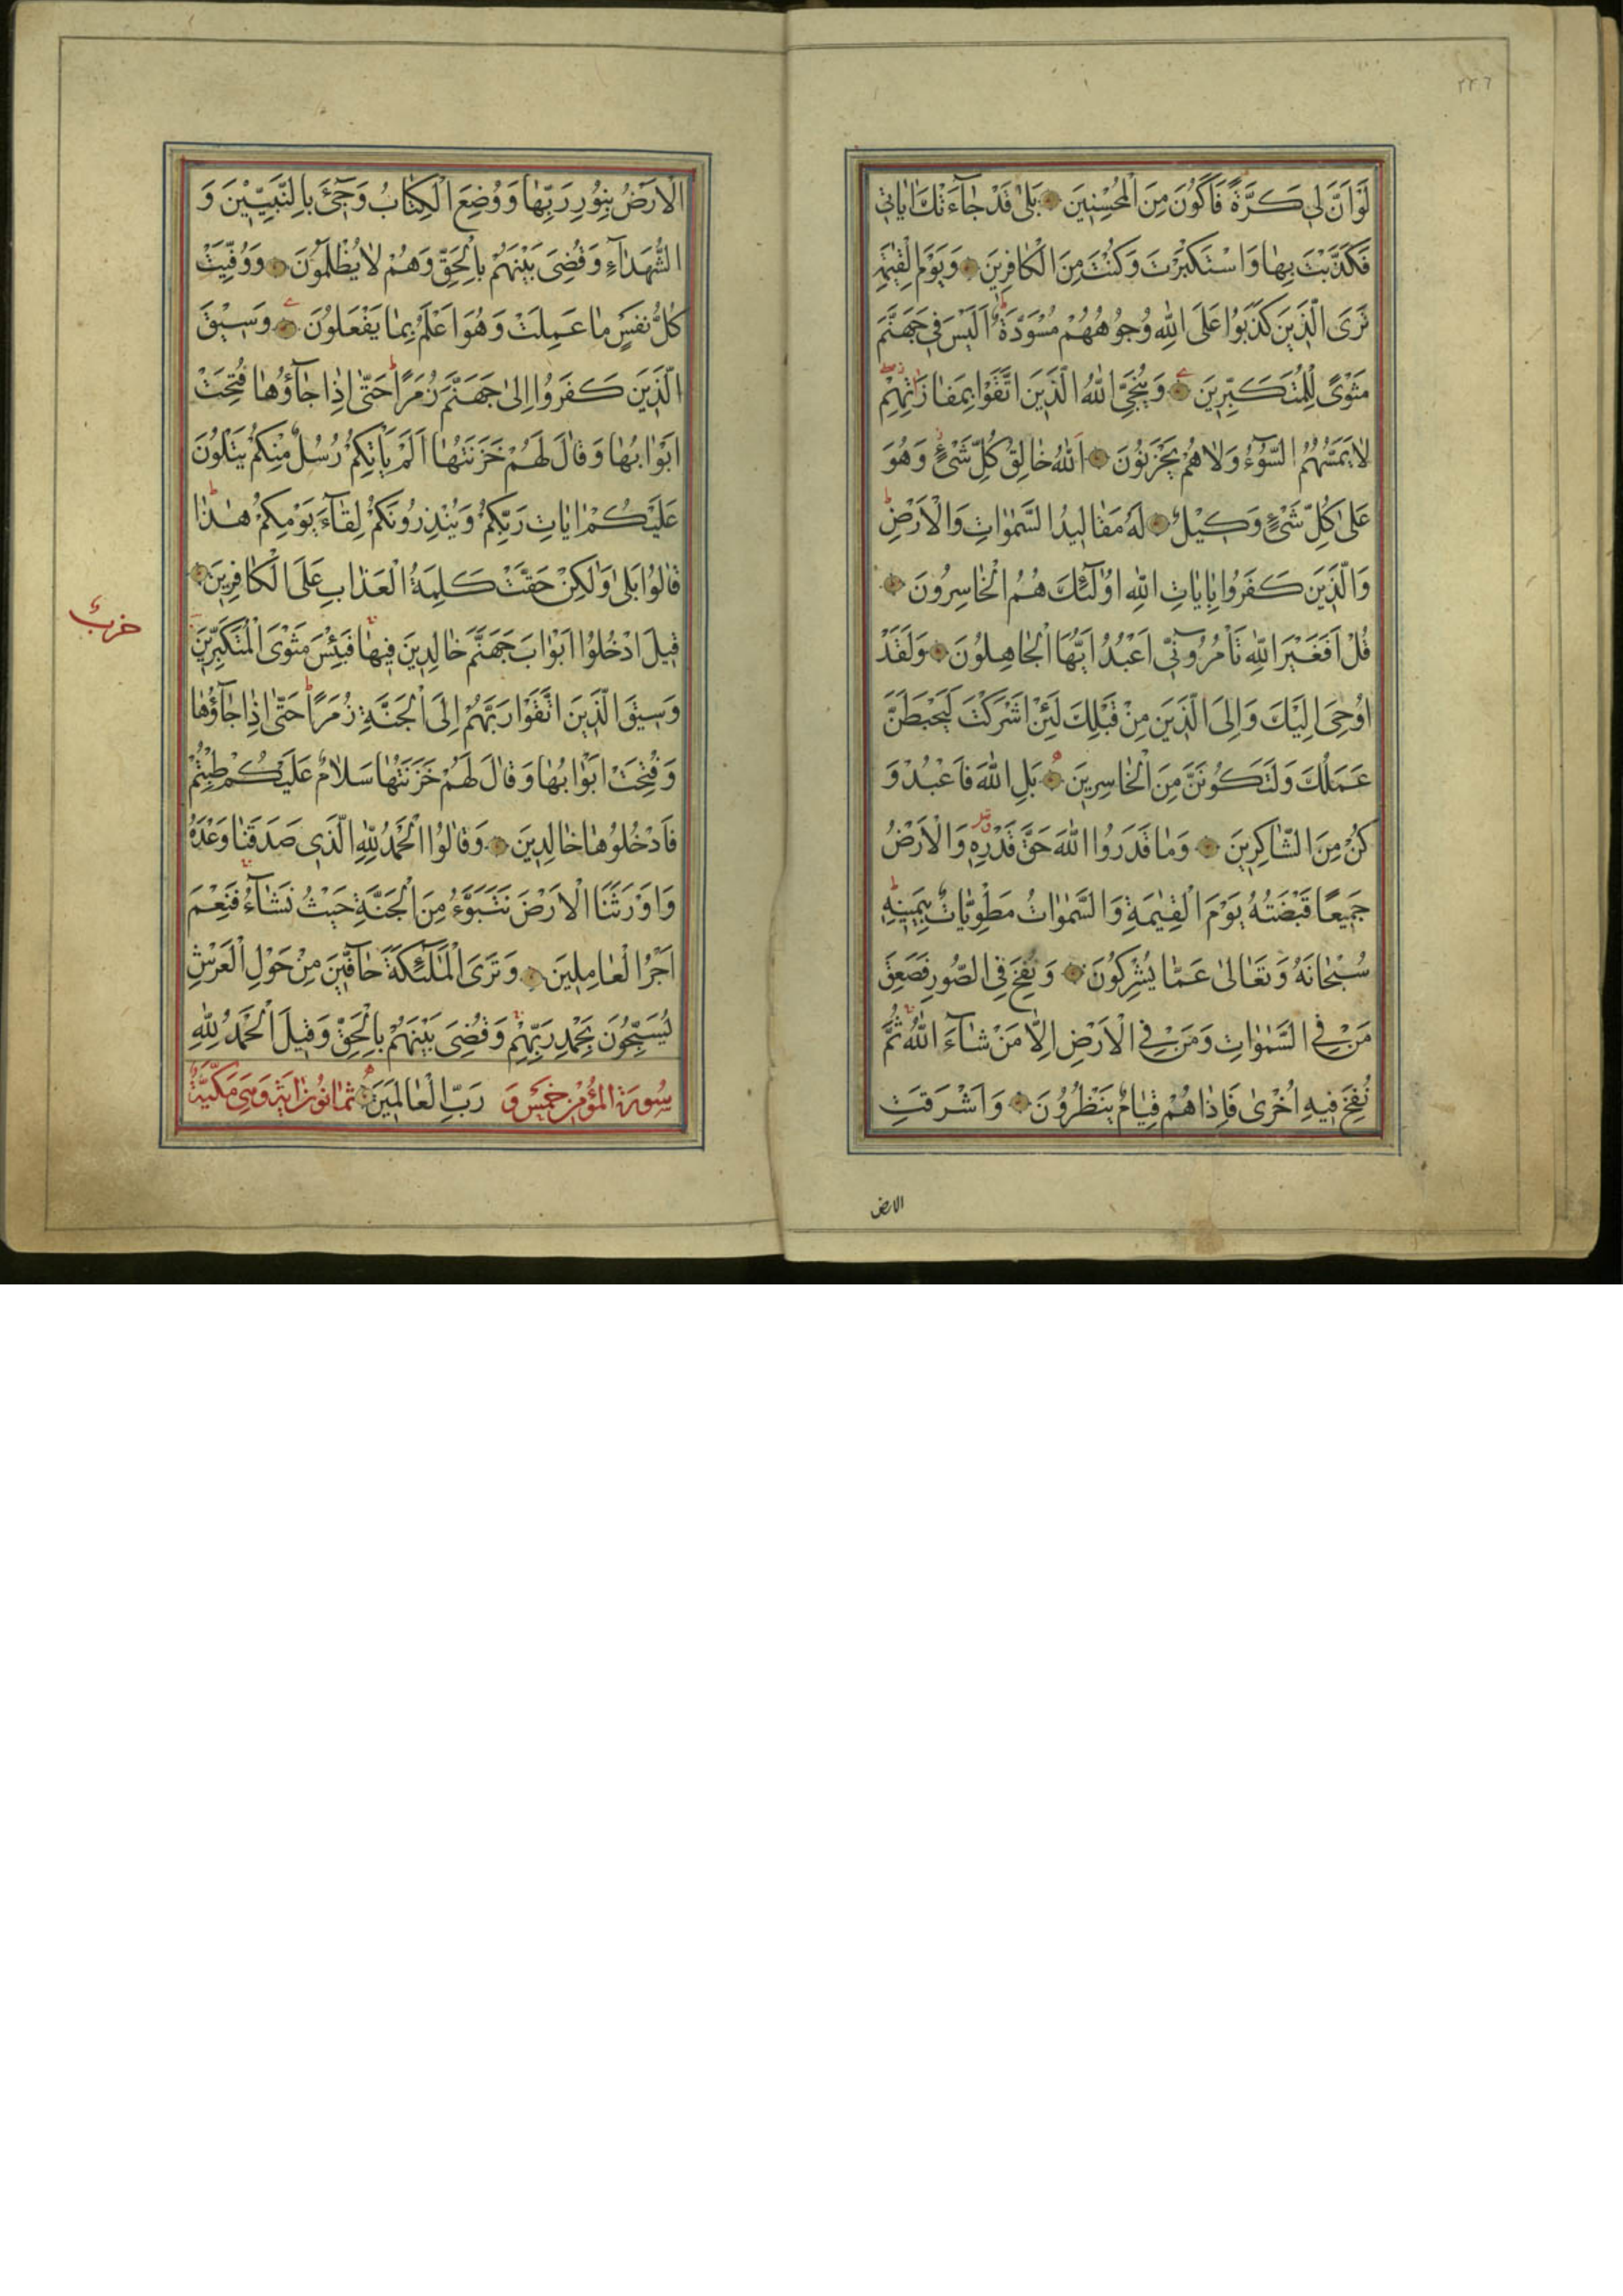 ٢٤٦
لَوْ اَنَّ لِي كَرَّةً فَاَكُونَ مِنَ الْمُحْسِنِينَ بَلٰى قَدْ جَاۤءَتْكَ اٰيَاتِي
فَكَذَّبْتَ بِهَا وَاسْتَكْبَرْتَ وَكُنْتَ مِنَ الْكَافِرِينَ وَيَوْمَ الْقِيٰمَةِ
تَرَى الَّذِينَ كَذَبُوا عَلَى اللّٰهِ وُجُوهُهُمْ مُسْوَدَّةٌ ط اَلَيْسَ فِي جَهَنَّمَ
مَثْوًى لِلْمُتَكَبِّرِينَ وَيُنَجِّي اللّٰهُ الَّذِينَ اتَّقَوْا بِمَفَازَتِهِمْ
لَا يَمَسُّهُمُ السُّوۤءُ وَلَا هُمْ يَحْزَنُونَ اَللّٰهُ خَالِقُ كُلِّ شَيْءٍ وَهُوَ
عَلٰى كُلِّ شَيْءٍ وَكِيلٌ لَهُ مَقَالِيدُ السَّمٰوَاتِ وَالْاَرْضِ ط
وَالَّذِينَ كَفَرُوا بِاٰيَاتِ اللّٰهِ اُولٰۤئِكَ هُمُ الْخَاسِرُونَ
قُلْ اَفَغَيْرَ اللّٰهِ تَاْمُرُوۤنِّي اَعْبُدُ اَيُّهَا الْجَاهِلُونَ وَلَقَدْ
اُوحِيَ اِلَيْكَ وَاِلَى الَّذِينَ مِنْ قَبْلِكَ لَئِنْ اَشْرَكْتَ لَيَحْبَطَنَّ
عَمَلُكَ وَلَتَكُونَنَّ مِنَ الْخَاسِرِينَ بَلِ اللّٰهَ فَاعْبُدْ وَ
كُنْ مِنَ الشَّاكِرِينَ وَمَا قَدَرُوا اللّٰهَ حَقَّ قَدْرِهِ وَالْاَرْضُ
جَمِيعًا قَبْضَتُهُ يَوْمَ الْقِيٰمَةِ وَالسَّمٰوَاتُ مَطْوِيَّاتٌ بِيَمِينِهِ ط
سُبْحَانَهُ وَتَعَالٰى عَمَّا يُشْرِكُونَ وَنُفِخَ فِي الصُّورِ فَصَعِقَ
مَنْ فِي السَّمٰوَاتِ وَمَنْ فِي الْاَرْضِ اِلَّا مَنْ شَاۤءَ اللّٰهُ ثُمَّ
نُفِخَ فِيهِ اُخْرٰى فَاِذَا هُمْ قِيَامٌ يَنْظُرُونَ وَاَشْرَقَتِ
الارض
الْاَرْضُ بِنُورِ رَبِّهَا وَوُضِعَ الْكِتَابُ وَجِيۤءَ بِالنَّبِيِّينَ وَ
الشُّهَدَاۤءِ وَقُضِيَ بَيْنَهُمْ بِالْحَقِّ وَهُمْ لَا يُظْلَمُونَ وَوُفِّيَتْ
كُلُّ نَفْسٍ مَا عَمِلَتْ وَهُوَ اَعْلَمُ بِمَا يَفْعَلُونَ وَسِيقَ
الَّذِينَ كَفَرُوا اِلٰى جَهَنَّمَ زُمَرًا ط حَتّٰى اِذَا جَاۤؤُهَا فُتِحَتْ
اَبْوَابُهَا وَقَالَ لَهُمْ خَزَنَتُهَا اَلَمْ يَاْتِكُمْ رُسُلٌ مِنْكُمْ يَتْلُونَ
عَلَيْكُمْ اٰيَاتِ رَبِّكُمْ وَيُنْذِرُونَكُمْ لِقَاۤءَ يَوْمِكُمْ هٰذَا ط
قَالُوا بَلٰى وَلٰكِنْ حَقَّتْ كَلِمَةُ الْعَذَابِ عَلَى الْكَافِرِينَ
قِيلَ ادْخُلُوا اَبْوَابَ جَهَنَّمَ خَالِدِينَ فِيهَا فَبِئْسَ مَثْوَى الْمُتَكَبِّرِينَ
وَسِيقَ الَّذِينَ اتَّقَوْا رَبَّهُمْ اِلَى الْجَنَّةِ زُمَرًا ط حَتّٰى اِذَا جَاۤؤُهَا
وَفُتِحَتْ اَبْوَابُهَا وَقَالَ لَهُمْ خَزَنَتُهَا سَلَامٌ عَلَيْكُمْ طِبْتُمْ
فَادْخُلُوهَا خَالِدِينَ وَقَالُوا الْحَمْدُ لِلّٰهِ الَّذِي صَدَقَنَا وَعْدَهُ
وَاَوْرَثَنَا الْاَرْضَ نَتَبَوَّءُ مِنَ الْجَنَّةِ حَيْثُ نَشَاۤءُ فَنِعْمَ
اَجْرُ الْعَامِلِينَ وَتَرَى الْمَلٰۤئِكَةَ حَاۤفِّينَ مِنْ حَوْلِ الْعَرْشِ
يُسَبِّحُونَ بِحَمْدِ رَبِّهِمْ وَقُضِيَ بَيْنَهُمْ بِالْحَقِّ وَقِيلَ الْحَمْدُ لِلّٰهِ
سُورَةُ الْمُؤْمِنِ خَمْسٌ وَ رَبِّ الْعَالَمِينَ ثَمَانُونَ اٰيَةً وَهِيَ مَكِّيَّةٌ